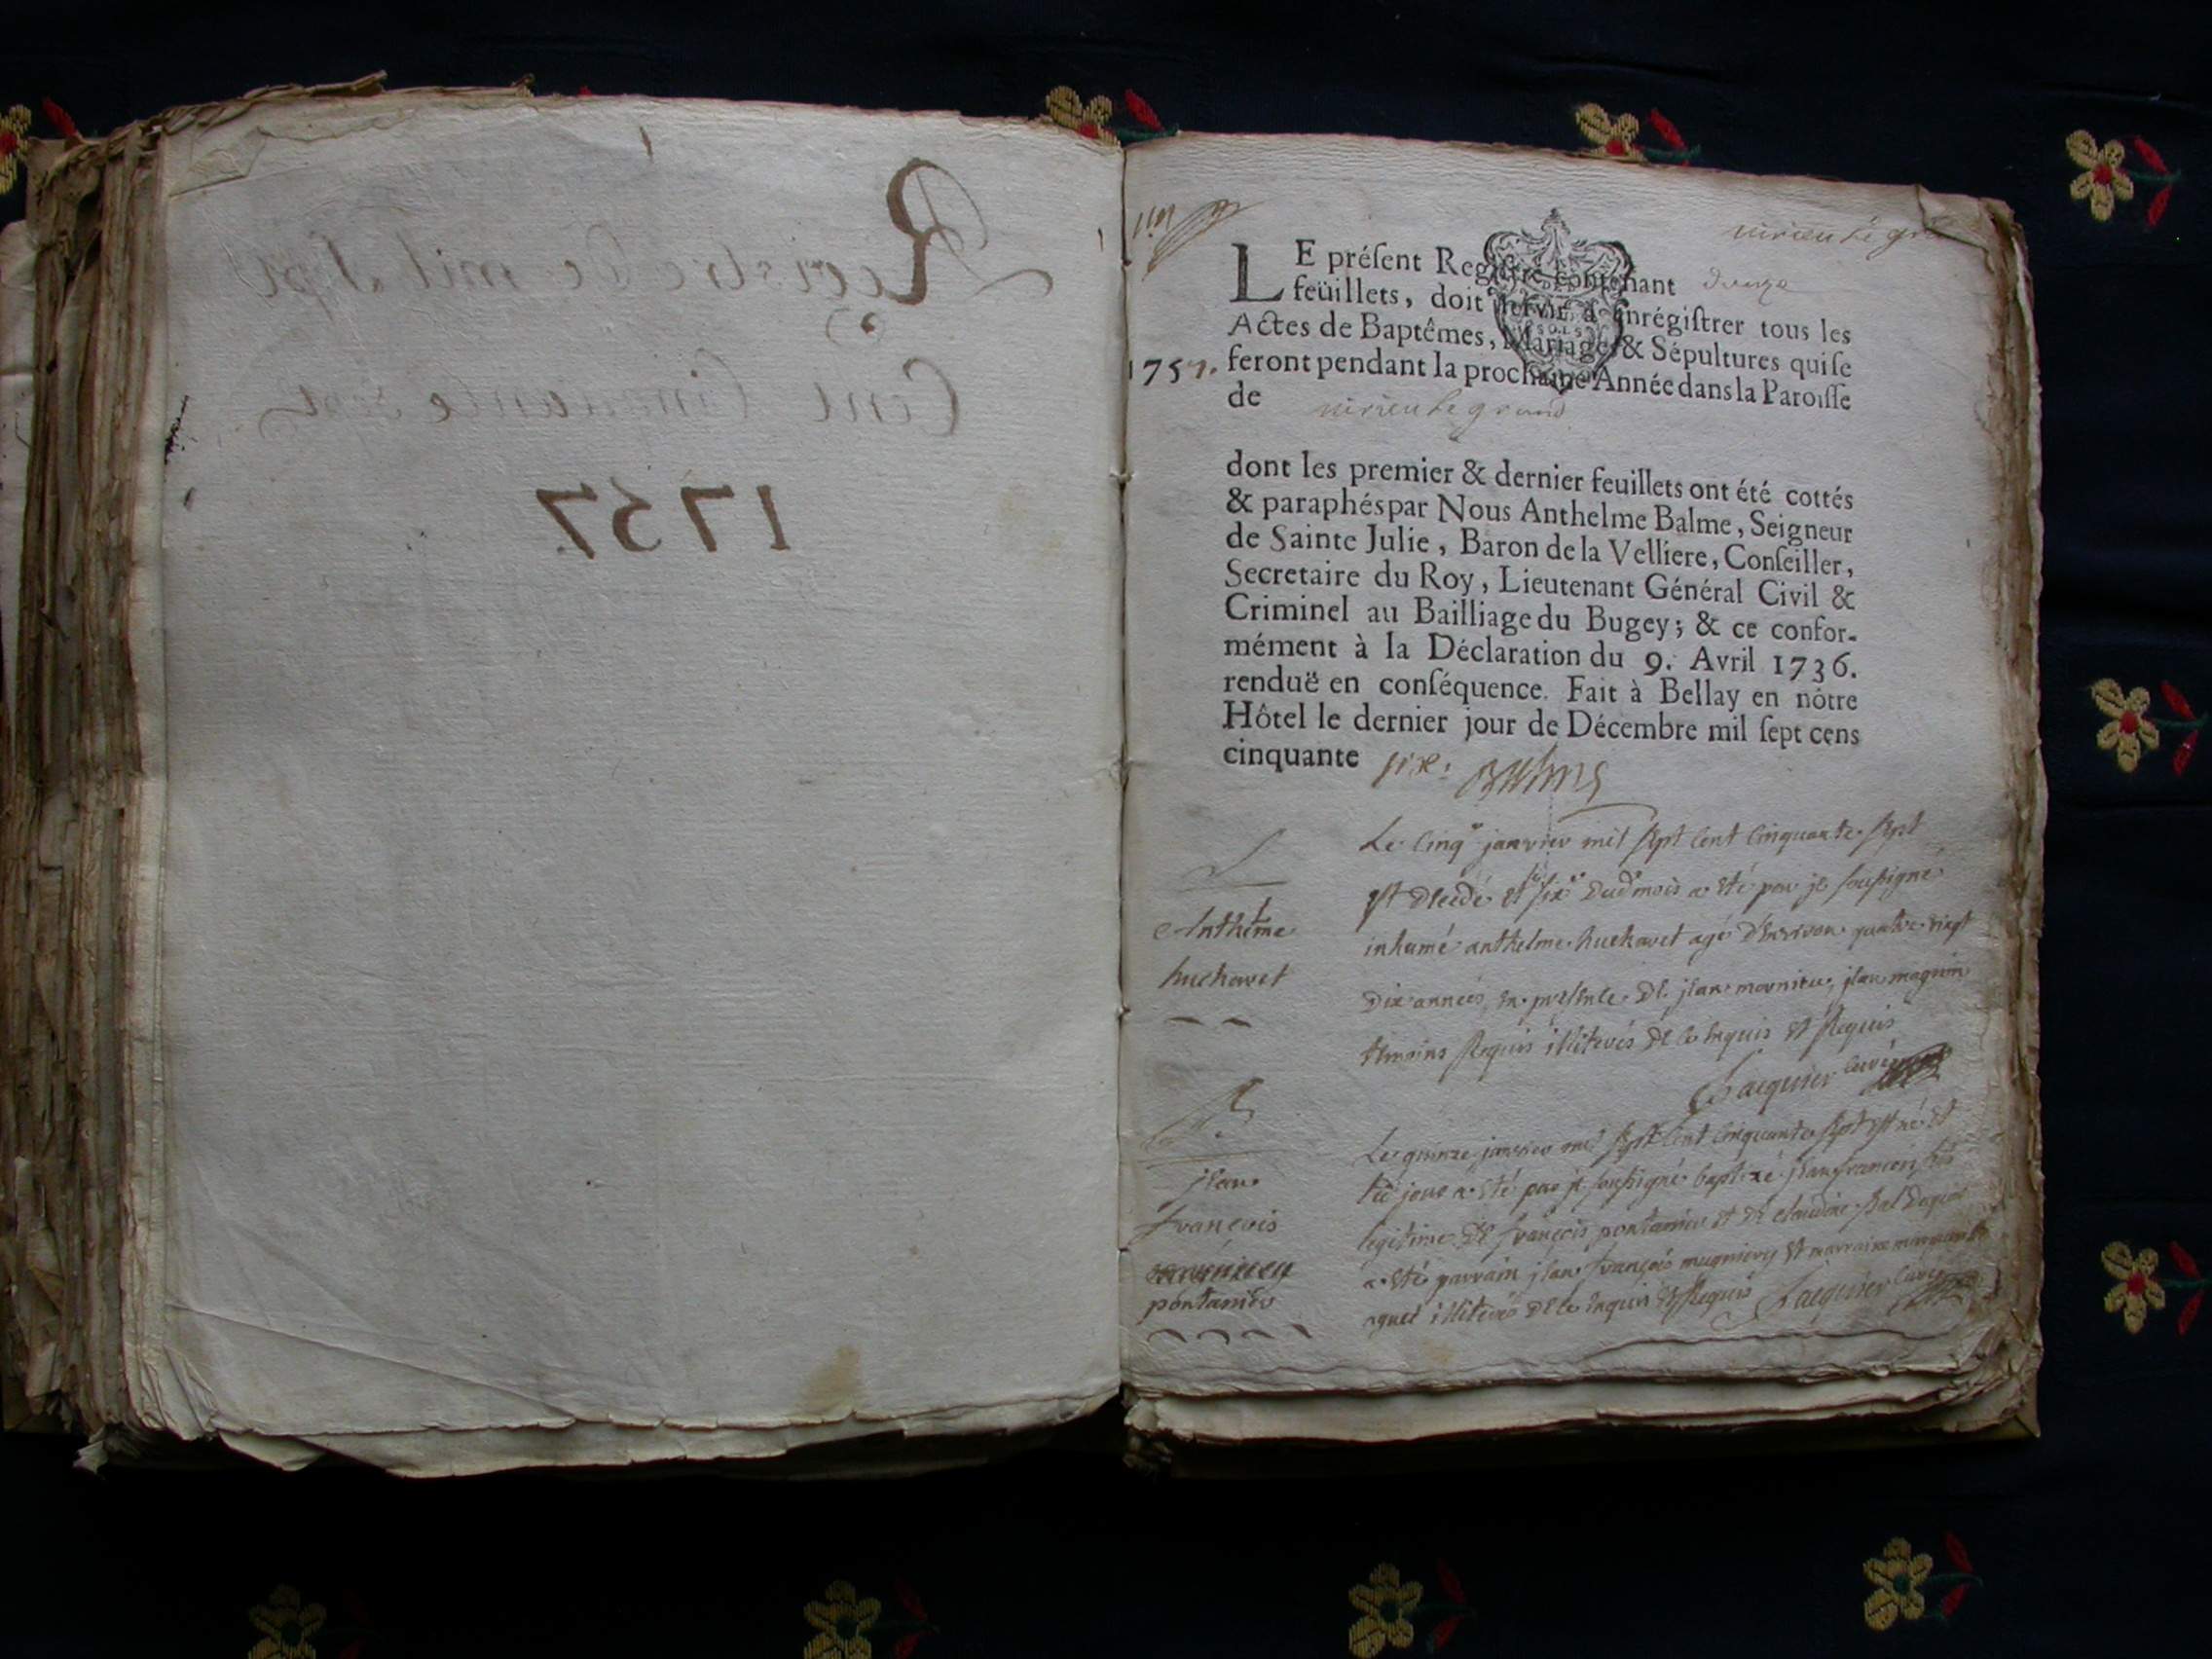 Registre de mil sept
Cent Cinquante sept
1757
virieu le gra
LE préſent Regiſtre contenant douze
feüillets, doit ſervir à enrégiſtrer tous les
Actes de Baptêmes, Mariages & Sépultures qui ſe
1757. feront pendant la prochaine Année dans la Paroiſſe
de virieu le grand
dont les premier & dernier feuillets ont été cottés
& paraphés par Nous Anthelme Balme, Seigneur
de Sainte Julie, Baron de la Velliere, Conſeiller,
Secretaire du Roy, Lieutenant Général Civil &
Criminel au Bailliage du Bugey; & ce confor-
mément à la Déclaration du 9. Avril 1736.
renduë en conſéquence. Fait à Bellay en nôtre
Hôtel le dernier jour de Décembre mil ſept cens
cinquante six: Balme
Le cinq janvier mil sept cent cinquante sept
est decedé et le six dud mois a été par je soussigné
Anthelme
inhumé anthelme huchavet agé d'environ quatre vingt
huchavet
dix années, en presence de jean jean magnin
temoins requis illiterés de ce enquis et requis
Jacquier curé
Le quinze janvier mil sept cent cinquante sept est né et
jean
led jour a été par je soussigné baptizé jean françois fils
françois
legitime de françois pontanier et de claudine
pontanier
a été parrain jean françois et marraine
illiterés de ce enquis et requis Jacquier curé